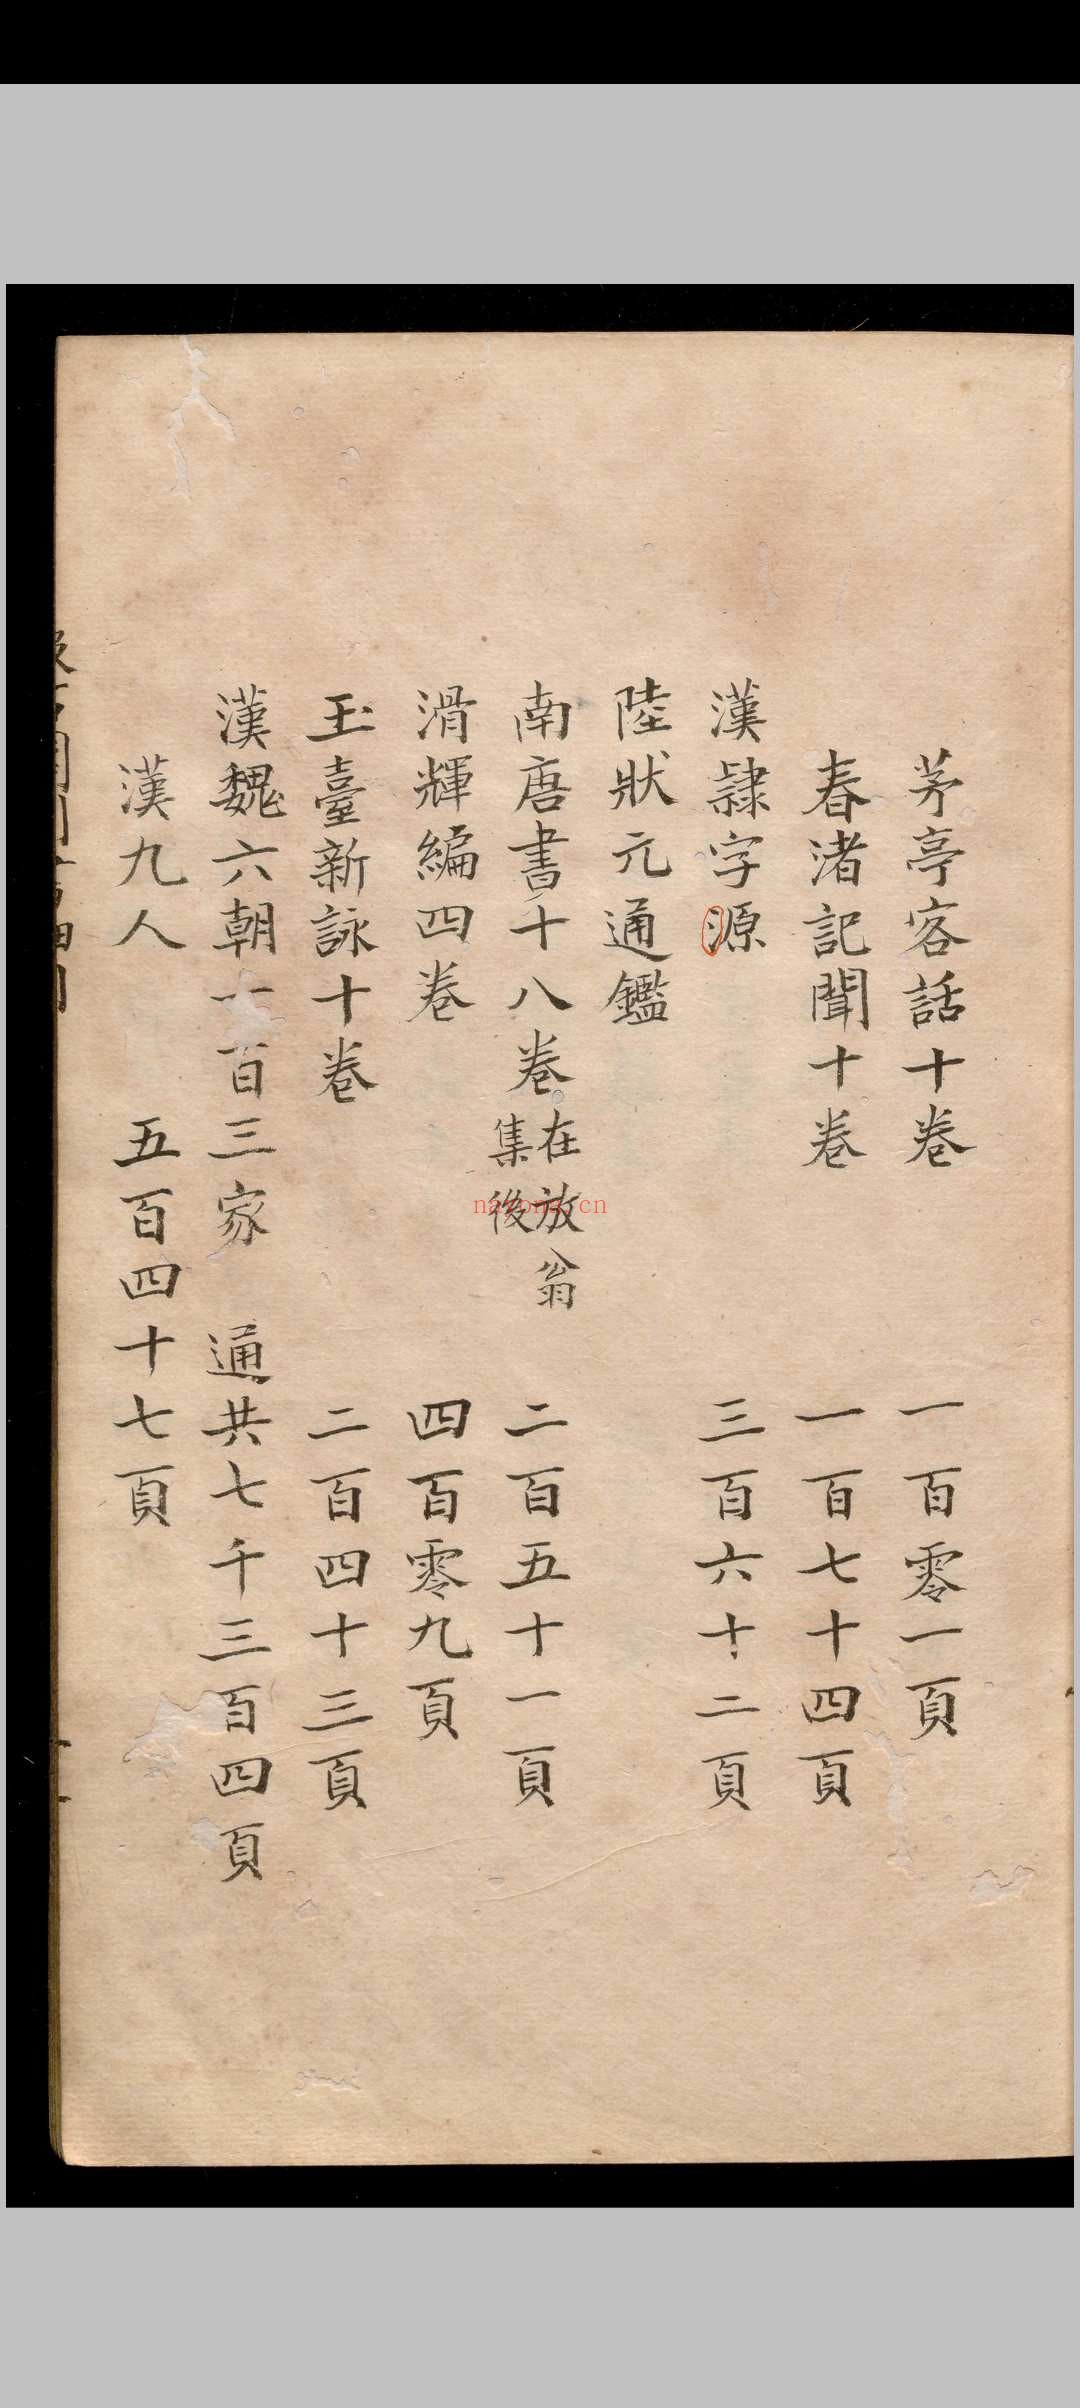 茅亭客話十卷　一百零一頁
春渚記聞十卷　一百七十四頁
漢隸字源　三百六十二頁
陸狀元通鑑
南唐書十八卷　在放翁集後　二百五十一頁
滑輝編四卷　四百零九頁
玉臺新詠十卷　二百四十三頁
漢魏六朝一百三家　通共七千三百四頁
漢九人　五百四十七頁
nayona.cn